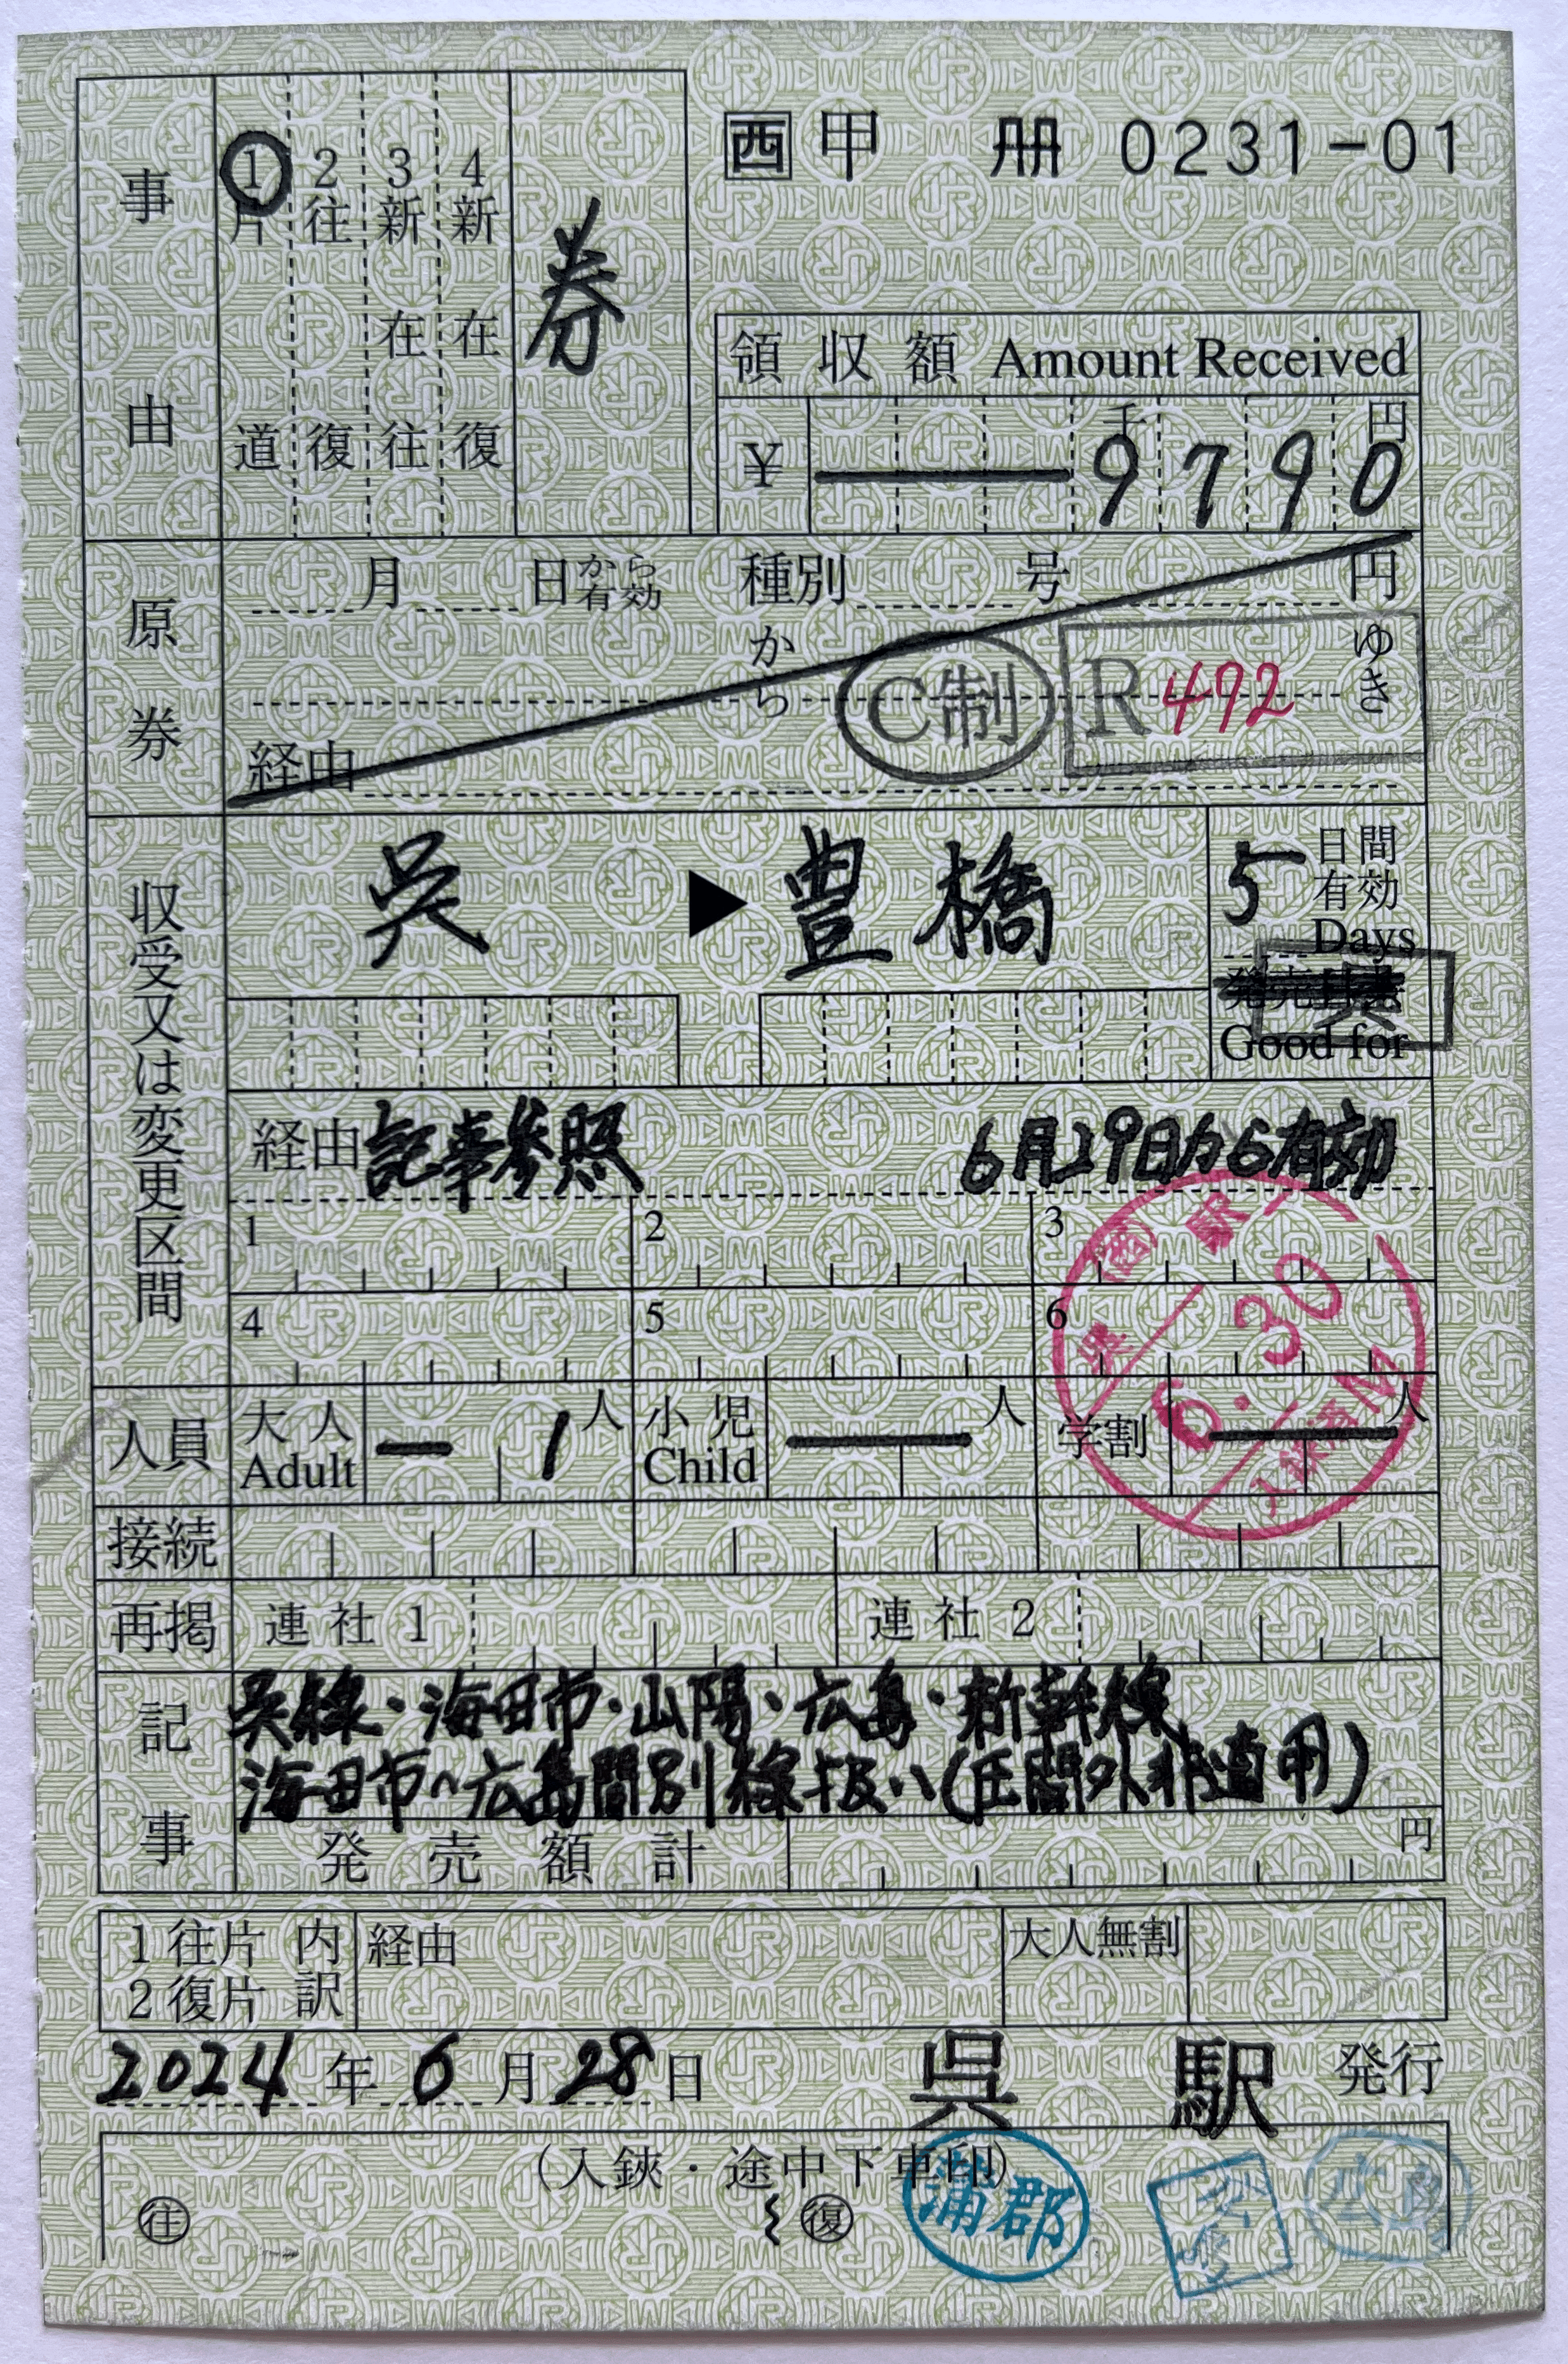 西 甲 冊 0231-01
事由
1 片道
2 往復
3 新在往
4 新在復
券
領収額 Amount Received
¥ 千 円
9790
原券
月 日から有効 種別 号 円
から ゆき
経由
C制 R472
収受又は変更区間
呉 ▶ 豊橋
5 日間有効
Days
Good for
経由 記事参照 6月29日から有効
1 2 3
4 5 6
呉(西)駅
6.30
入鋏済M
人員 大人 Adult 1 人 小児 Child 人 学割 人
接続
再掲 連社1 連社2
記事
呉線・海田市・山陽・広島・新幹線
海田市〜広島間別線扱い(区間外非適用)
発売額計 円
1往片 内訳 経由 大人無割
2復片
2024年6月28日 呉駅 発行
(入鋏・途中下車印)
往 復 蒲郡 広島